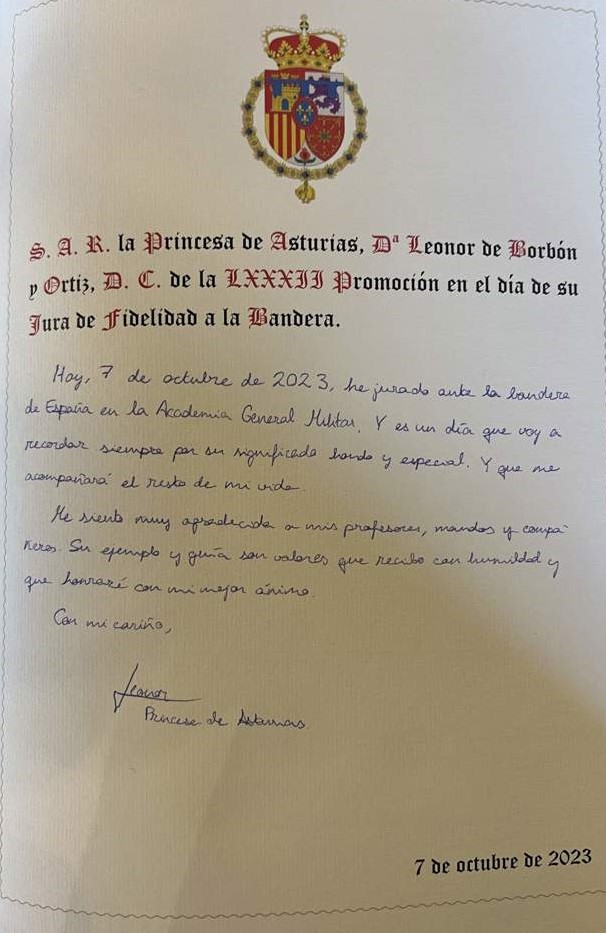 S. A. R. la Princesa de Asturias, Dª Leonor de Borbón
y Ortiz, D. C. de la LXXXII Promoción en el día de su
Jura de Fidelidad a la Bandera.
Hoy, 7 de octubre de 2023, he jurado ante la bandera
de España en la Academia General Militar. Y es un día que voy a
recordar siempre por su significado hondo y especial. Y que me
acompañará el resto de mi vida.
Me siento muy agradecida a mis profesores, mandos y compa-
ñeros. Su ejemplo y guía son valores que recibo con humildad y
que honraré con mi mejor ánimo.
Con mi cariño,
Leonor
Princesa de Asturias
7 de octubre de 2023